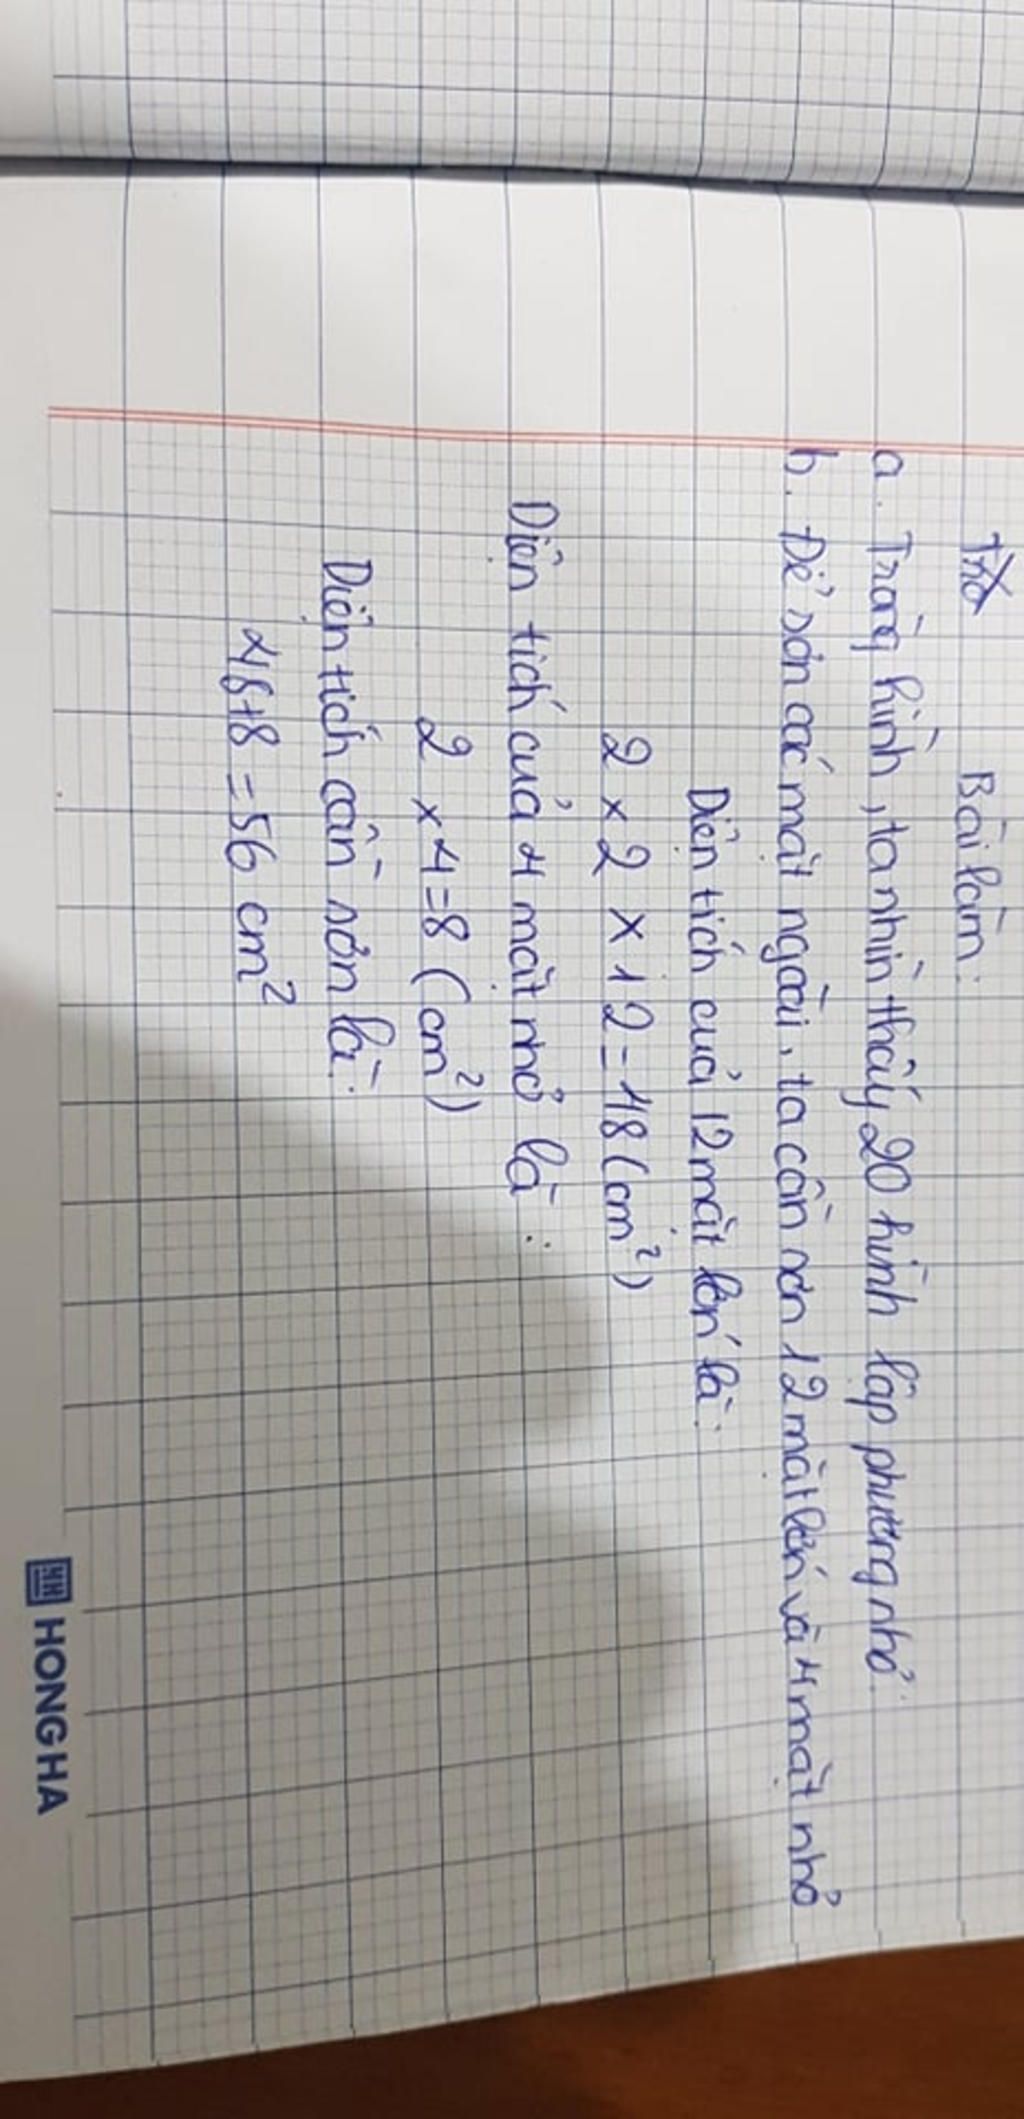 Bài làm:
a. Trong hình, ta nhìn thấy 20 hình lập phương nhỏ.
b. Để sơn các mặt ngoài, ta cần sơn 12 mặt lớn và 4 mặt nhỏ
Diện tích của 12 mặt lớn là:
2 x 2 x 12 = 48 (cm²)
Diện tích của 4 mặt nhỏ là:
2 x 4 = 8 (cm²)
Diện tích cần sơn là:
48 + 8 = 56 cm²
HONG HA